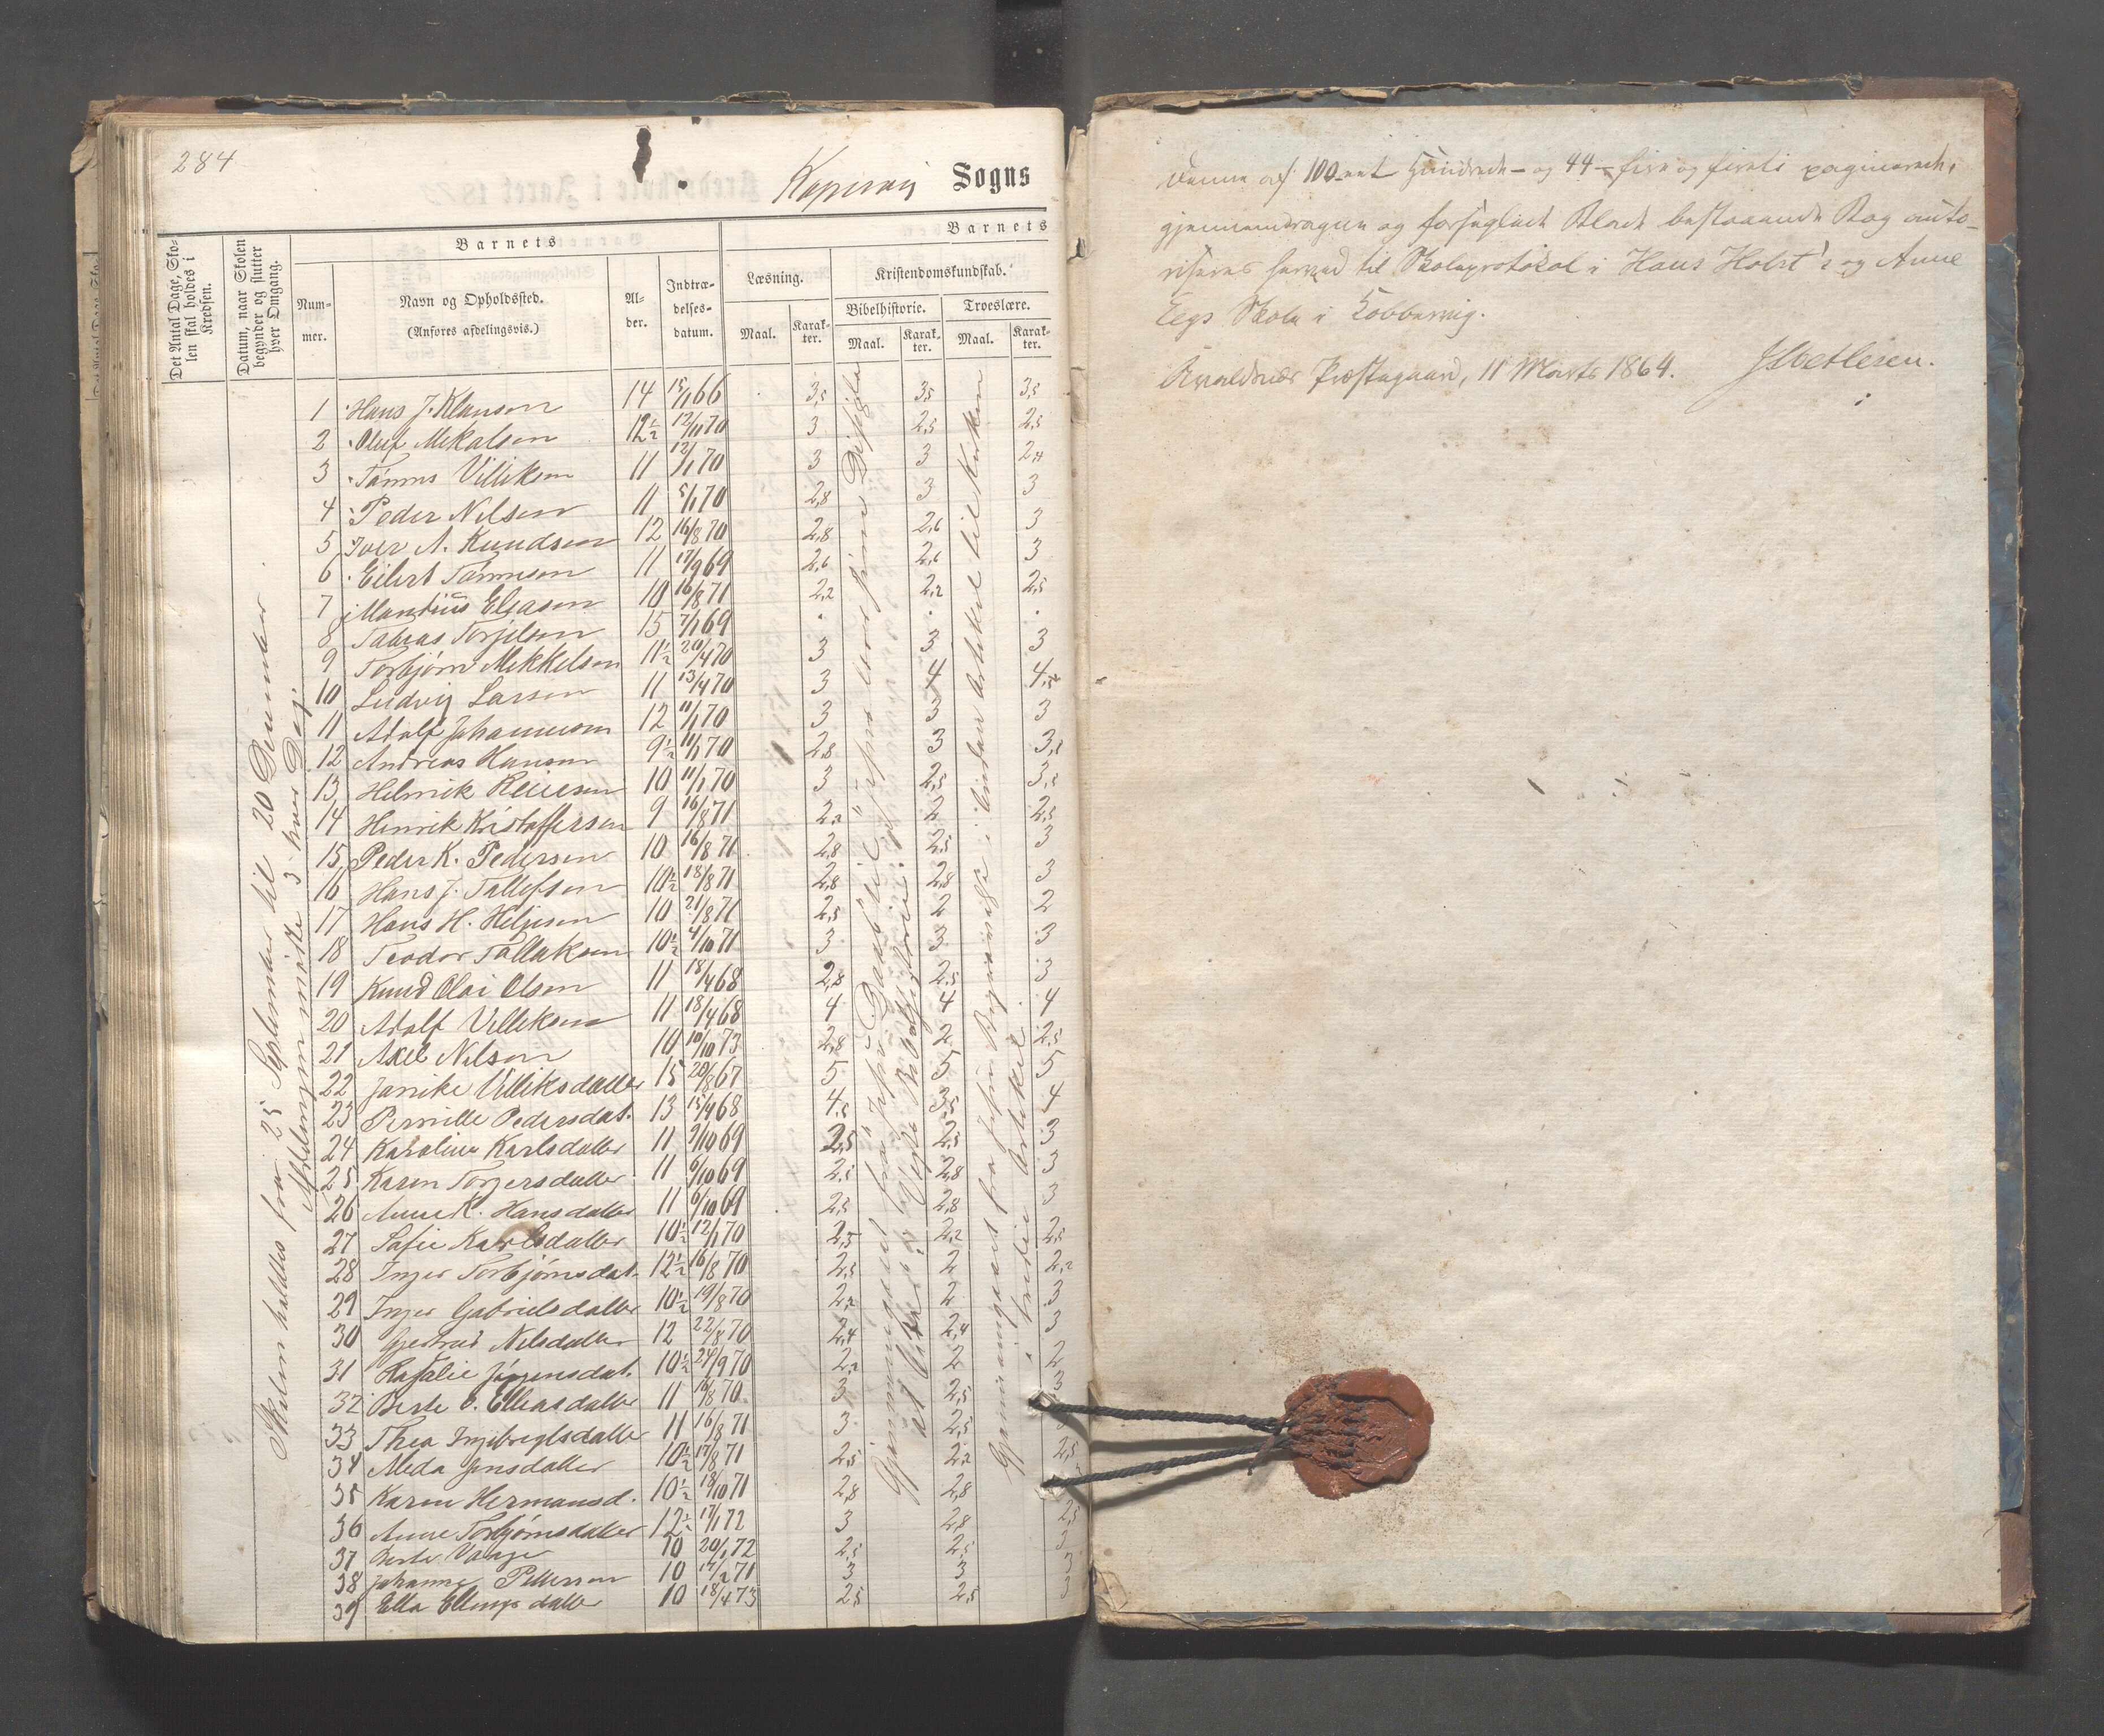 284
Kopervig Sogns
Barnets
Barnets
Det Antal Dage, Sko-
len skal holdes i
Kredsen.
Datum, naar Skolen
begynder og slutter
hver Omgang.
Num-
mer.
Navn og Opholdssted.
(Anføres afdelingsvis.)
Al-
der.
Indtræ-
delses-
datum.
Læsning.
Kristendomskundskab.
Bibelhistorie.
Troeslære.
Maal.
Karak-
ter.
Maal.
Karak-
ter.
Maal.
Karak-
ter.
Skolen holdtes fra 25 September til 20 December
Afdelingen møtte 3 hver Dag.
1 Hans J. Klausen 14 15/1 66 3,5 3,5 3,5
2 Oluf Mekalsen 12½ 12/11 70 3 2,5 2,5
3 Tønnes Villiksen 11 12/1 70 3 3
4 Peder Nilsen 11 5/1 70 2,8 3 3
5 Iver A. Knudsen 12 16/8 70 2,8 2,6 3
6 Eilert Tønnesen 11 17/9 69 2,6 2,6 3
7 Mandius Eliasen 10 16/8 71 2,2 2,2 2,5
8 Tobias Torjelsen 15 7/1 69 . . .
9 Torbjørn Mekkelsen 11½ 20/4 70 3 3 3
10 Ludvig Larsen 11 13/4 70 3 4 4,5
11 Adolf Johannesen 12 11/1 70 3 3 3
12 Andreas Hansen 9½ 11/1 70 2,8 3
13 Helmik Reiersen 10 11/1 70 3 2,5 3,5
14 Henrik Kristoffersen 9 16/8 71 2,2 2 2,5
15 Peder K. Pedersen 10 16/8 71 2,8 2,5 3
16 Hans J. Tollefsen 10½ 18/8 71 2,8 2,8 3
17 Hans H. Heljesen 10 21/8 71 2,5 2 2
18 Teodor Tollaksen 10½ 4/10 71 3 3 3
19 Knud Olai Olsen 11 18/4 68 2,8 2,5 3
20 Adolf Villiksen 11 18/4 68 4 4 4
21 Axel Nilsen 10 10/10 73 2,8 2 2,5
22 Janike Villiksdatter 15 20/8 67 5 5 5
23 Pernille Pedersdat. 13 15/4 68 4,5 3,5 4
24 Karoline Karlsdatter 11 9/10 69 2,5 2,5 3
25 Karen Torgersdatter 11 6/10 69 2,5 2,8 3
26 Anne K. Hansdatter 11 6/10 69 2,5 2,8 3
27 Sofie Karlsdatter 10½ 12/1 70 2,5 2,2 2,5
28 Inger Torbjørnsdat. 12½ 16/8 70 2,5 2 2,2
29 Inger Gabrielsdatter 10½ 19/8 70 2,2 2 3
30 Gjertrud Nilsdatter 12 22/8 70 2,4 2,4 3
31 Rafalie Jørgensdat. 10½ 24/9 70 2,2 2 2
32 Berte O. Elleasdatter 11 16/8 70 3 2,5 3
33 Thea Ingebregtsdatter 11 16/8 71 3 2,5
34 Meda Jensdatter 10½ 17/8 71 2,5 2,2 2,5
35 Karen Hermansd. 10½ 18/10 71 2,8 2,8
36 Anne Torbjørnsdatter 12½ 17/1 72 3 2,8 2,5
37 Berte Vaage 10 20/1 72 2,5 2,5 3
38 Johanne Pettersen 10 17/2 71 3 3 3
39 Ella Ellingsdatter 10 18/4 73 2,5 2,5 3
Denne af 100 – eet Hundrede – og 44 – fire og fireti paginerede,
gjennemdragne og forseglede Blade bestaaende Bog auto-
riseres herved til Skoleprotokol i Hans Holst's og Anne
Eegs Skole i Kobbervig.
Avaldsnæs Præstegaard, 11 Marts 1864.